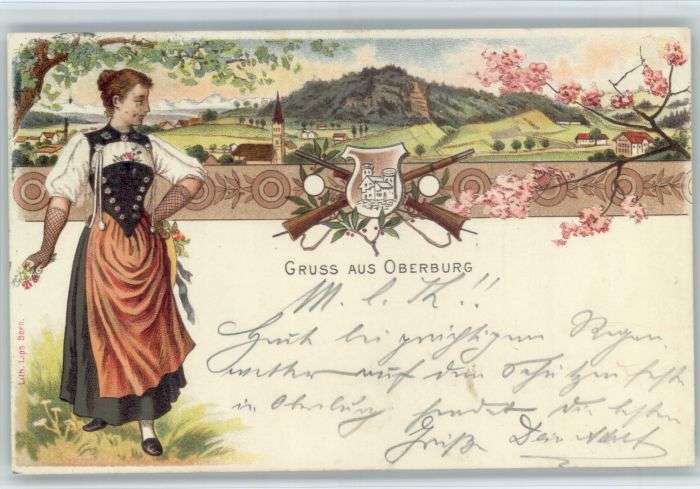 GRUSS AUS OBERBURG
M. l. K!!
Heut bei prächtigem Regen
wetter auf dem Schützenfeste
in Oberburg sendet die besten
Grüße Dein Adolf
Lith. Lips Bern.